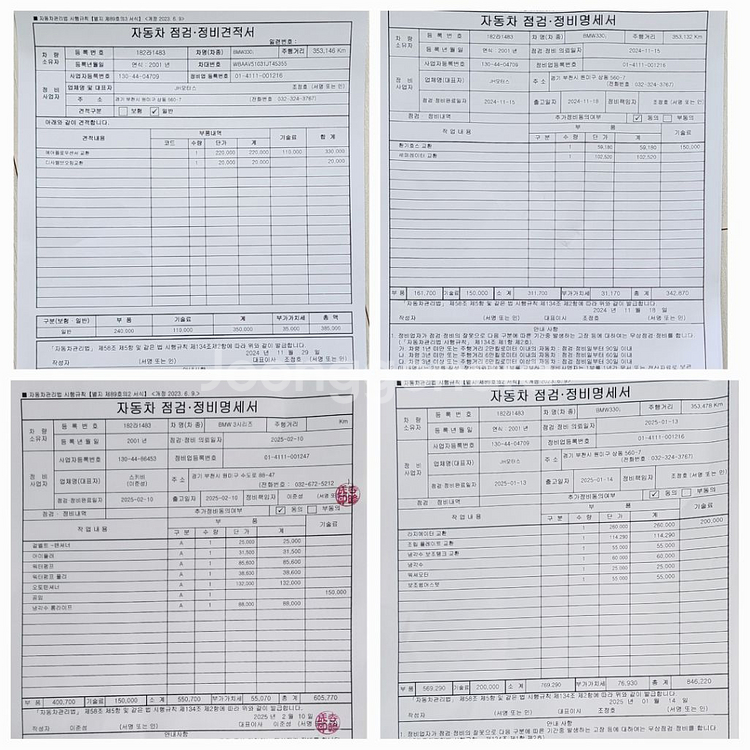 ■ 자동차관리법 시행규칙 [별지 제89호의3 서식] <개정 2023. 6. 9.>
자동차 점검·정비견적서
일련번호 :
차량 소유자
등록번호 182라1483 차명(차종) BMW330i 주행거리 353,146 Km
등록년월일 연식 : 2001 년 차대번호
정비 사업자
사업자등록번호 130-44-04709 정비업 등록번호 01-4111-001216
업체명 및 대표자 JH모터스 조정호 (서명 또는 인)
주 소 경기 부천시 원미구 상동 560-7 (전화번호 : 032-324-3767)
견적구분 □ 보험 ☑ 일반
아래와 같이 견적합니다.
견적내용 부품내역 기술료 합계
코드 수량 단가 계
에어플로우센서 교환 1 220,000 220,000 110,000 330,000
1 20,000 20,000 20,000
구분(보험·일반) 부 품 기술료 계 부가가치세 총 액
일반 240,000 110,000 350,000 35,000 385,000
「자동차관리법」 제58조 제5항 및 같은 법 시행규칙 제134조제2항에 따라 위와 같이 발급합니다.
2024 년 11 월 29 일
작성자 (서명 또는 인) 대표이사 조정호 (서명 또는 인)
자동차 점검·정비명세서
차량 소유자
등록번호 182라1483 차명(차종) BMW330i 주행거리 353,132 Km
등록년월일 연식 : 2001 년 점검·정비 의뢰일자 2024-11-15
정비 사업자
사업자등록번호 130-44-04709 정비업등록번호 01-4111-001216
업체명(대표자) JH모터스 주 소 경기 부천시 원미구 상동 560-7 (전화번호 : 032-324-3767)
점검·정비완료일자 2024-11-15 출고일자 2024-11-18 정비책임자 조정호 (서명 또는 인)
점검·정비내용 추가정비동의여부 ☑ 동의 □ 부동의
작업내용 부 품 기술료
구분 수량 단가 계
환기호스 교환 1 59,180 59,180 150,000
세퍼레이터 교환 1 102,520 102,520
부 품 161,700 기술료 150,000 소 계 311,700 부가가치세 31,170 총 계 342,870
「자동차관리법」 제58조 제5항 및 같은 법 시행규칙 제134조 제2항에 따라 위와 같이 발급합니다.
2024 년 11 월 18 일
작성자 (서명 또는 인) 대표이사 조정호 (서명 또는 인)
안내 사항
1. 정비업자가 점검·정비의 잘못으로 다음 구분에 따른 기간중 발생하는 고장 등에 대하여는 무상점검·정비합니다.
(「자동차관리법 시행규칙」 제134조 제1항 제2호)
가. 차령 1년 미만 또는 주행거리 2만킬로미터 이내의 자동차 : 점검·정비일부터 90일 이내
나. 차령 3년 미만 또는 주행거리 6만킬로미터 이내의 자동차 : 점검·정비일부터 60일 이내
다. 차령 3년 이상 또는 주행거리 6만킬로미터 이상의 자동차 : 점검·정비일부터 30일 이내
■ 자동차관리법 시행규칙 [별지 제89호의2 서식] <개정 2023. 6. 9.>
자동차 점검·정비명세서
차량 소유자
등록번호 182라1483 차명(차종) BMW 3시리즈 주행거리 Km
등록년월일 2001 년 점검·정비 의뢰일자 2025-02-10
정비 사업자
사업자등록번호 130-44-66453 정비업등록번호 01-4111-001247
업체명(대표자) 스카비 (이준성) 주 소 경기 부천시 원미구 수도로 88-47 (전화번호 : 032-672-5212
점검·정비완료일자 2025-02-10 출고일자 2025-02-10 정비책임자 이준성 (서명
점검·정비내용 추가정비동의여부 ☑ 동의 □ 부동의
작업내용 부 품 기술료
구분 수량 단가 계
겉벨트-텐셔너 A 1 25,000 25,000
아이들러 A 1 31,500 31,500
워터펌프 A 1 85,600 85,600
워터펌프 풀리 A 1 38,600 38,600
오토텐셔너 A 1 132,000 132,000
공임 A 150,000
냉각수 플라이프 A 1 88,000 88,000
부 품 400,700 기술료 150,000 소 계 550,700 부가가치세 55,070 총 계 605,770
「자동차관리법」 제58조 제5항 및 같은 법 시행규칙 제134조 제2항에 따라 위와 같이 발급합니다.
2025 년 2 월 10 일
작성자 이준성 (서명 또는 인) 대표이사 이준성 (서명
안내사항
■ 자동차관리법 시행규칙 [별지 제89호의2 서식] <개정 2023. 6. 9.>
자동차 점검·정비명세서
차량 소유자
등록번호 182라1483 차명(차종) BMW330i 주행거리 353,478 Km
등록년월일 연식 : 2001 년 점검·정비 의뢰일자 2025-01-13
정비 사업자
사업자등록번호 130-44-04709 정비업등록번호 01-4111-001216
업체명(대표자) JH모터스 주 소 경기 부천시 원미구 상동 560-7 (전화번호 : 032-324-3767)
점검·정비완료일자 2025-01-13 출고일자 2025-01-14 정비책임자 조정호 (서명 또는 인)
점검·정비내용 추가정비동의여부 ☑ 동의 □ 부동의
작업내용 부 품 기술료
구분 수량 단가 계
라지에이터 교환 1 260,000 260,000 200,000
조립 플레이트 교환 1 114,290 114,290
냉각수 보조탱크 교환 1 55,000 55,000
냉각수 1 60,000 60,000
워셔모터 1 25,000 25,000
보조범어스텃 1 55,000 55,000
부 품 569,290 기술료 200,000 소 계 769,290 부가가치세 76,930 총 계 846,220
「자동차관리법」 제58조 제5항 및 같은 법 시행규칙 제134조 제2항에 따라 위와 같이 발급합니다.
2025 년 01 월 14 일
작성자 (서명 또는 인) 대표이사 조정호 (서명 또는 인)
안내사항
1. 정비업자가 점검·정비의 잘못으로 다음 구분에 따른 기간중 발생하는 고장 등에 대하여는 무상점검·정비합니다.